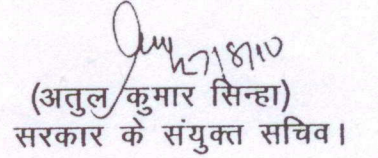 27/8/10
(अतुल कुमार सिन्हा)
सरकार के संयुक्त सचिव।